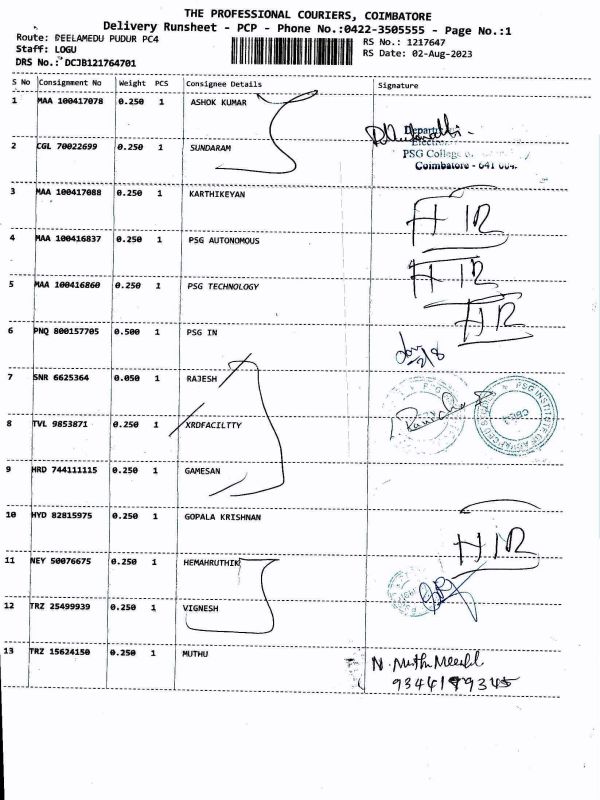 THE PROFESSIONAL COURIERS, COIMBATORE
Delivery Runsheet - PCP - Phone No.:0422-3505555 - Page No.:1
Route: PEELAMEDU PUDUR PC4
RS No.: 1217647
Staff: LOGU
RS Date: 02-Aug-2023
DRS No.: DCJB121764701
S No Consignment No Weight PCS Consignee Details Signature
1 MAA 100417078 0.250 1 ASHOK KUMAR
Departm
2 CGL 70022699 0.250 1 SUNDARAM
PSG College
Coimbatore - 641 004.
3 MAA 100417088 0.250 1 KARTHIKEYAN
4 MAA 100416837 0.250 1 PSG AUTONOMOUS
5 MAA 100416860 0.250 1 PSG TECHNOLOGY
6 PNQ 800157705 0.500 1 PSG IN
7 SNR 6625364 0.050 1 RAJESH
PSG INSTITUTE OF ADVANCED STUDIES
8 TVL 9853871 0.250 1 XRDFACILTTY
9 HRD 744111115 0.250 1 GAMESAN
10 HYD 82815975 0.250 1 GOPALA KRISHNAN
11 NEY 50076675 0.250 1 HEMAHRUTHIK
12 TRZ 25499939 0.250 1 VIGNESH
13 TRZ 15624150 0.250 1 MUTHU